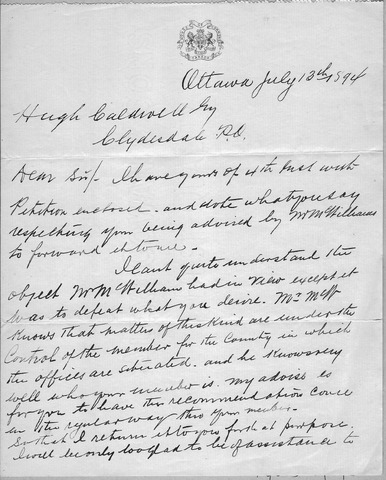 Ottawa July 13th 1894
Hugh Caldwell Esq
Clydesdale P.O.
Dear Sir/- I have yours of 4th Inst with
Petition enclosed - and note what you say
respecting your being advised by Mr McWilliams
to forward it to me -
I cant quite understand the
object Mr McWilliam had in view except it
was to defeat what you desire. Mr McW
knows that matters of this kind are under the
Control of the member for the County in which
the offices are situated. and he knows very
well who your member is. my advise is
for you to have the recommendation come
in the regular way thro your member.
So that I return it to you for that purpose.
I will be only too glad to be of assistance to